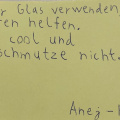 r Glas verwenden
ren helfen.
cool und
schmutze nicht.
Anej -